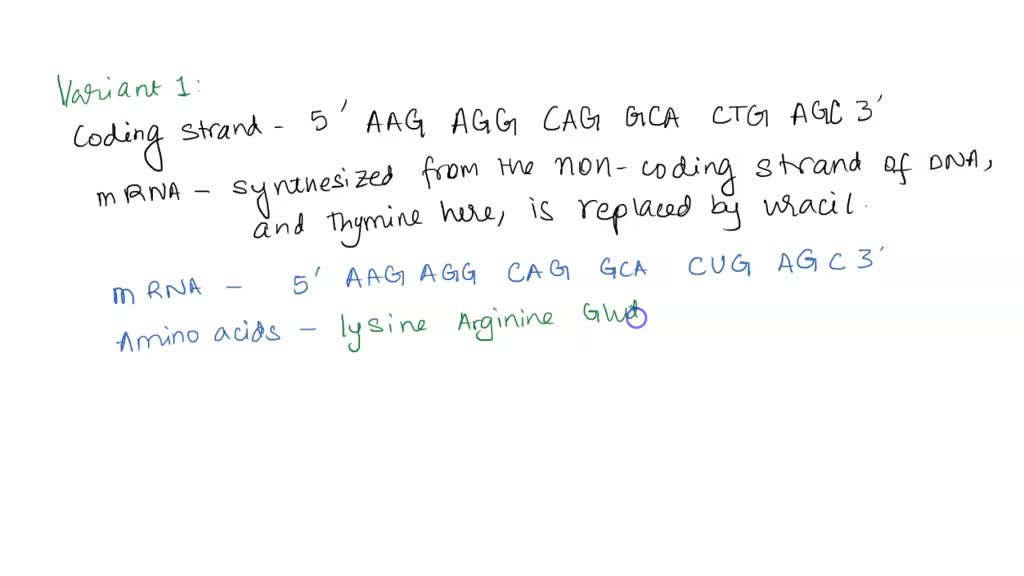 Variant 1:
Coding strand - 5' AAG AGG CAG GCA CTG AGC 3'
mRNA - synthesized from the non-coding strand of DNA,
and thymine here, is replaced by uracil.
mRNA - 5' AAG AGG CAG GCA CUG AGC 3'
Amino acids - lysine Arginine